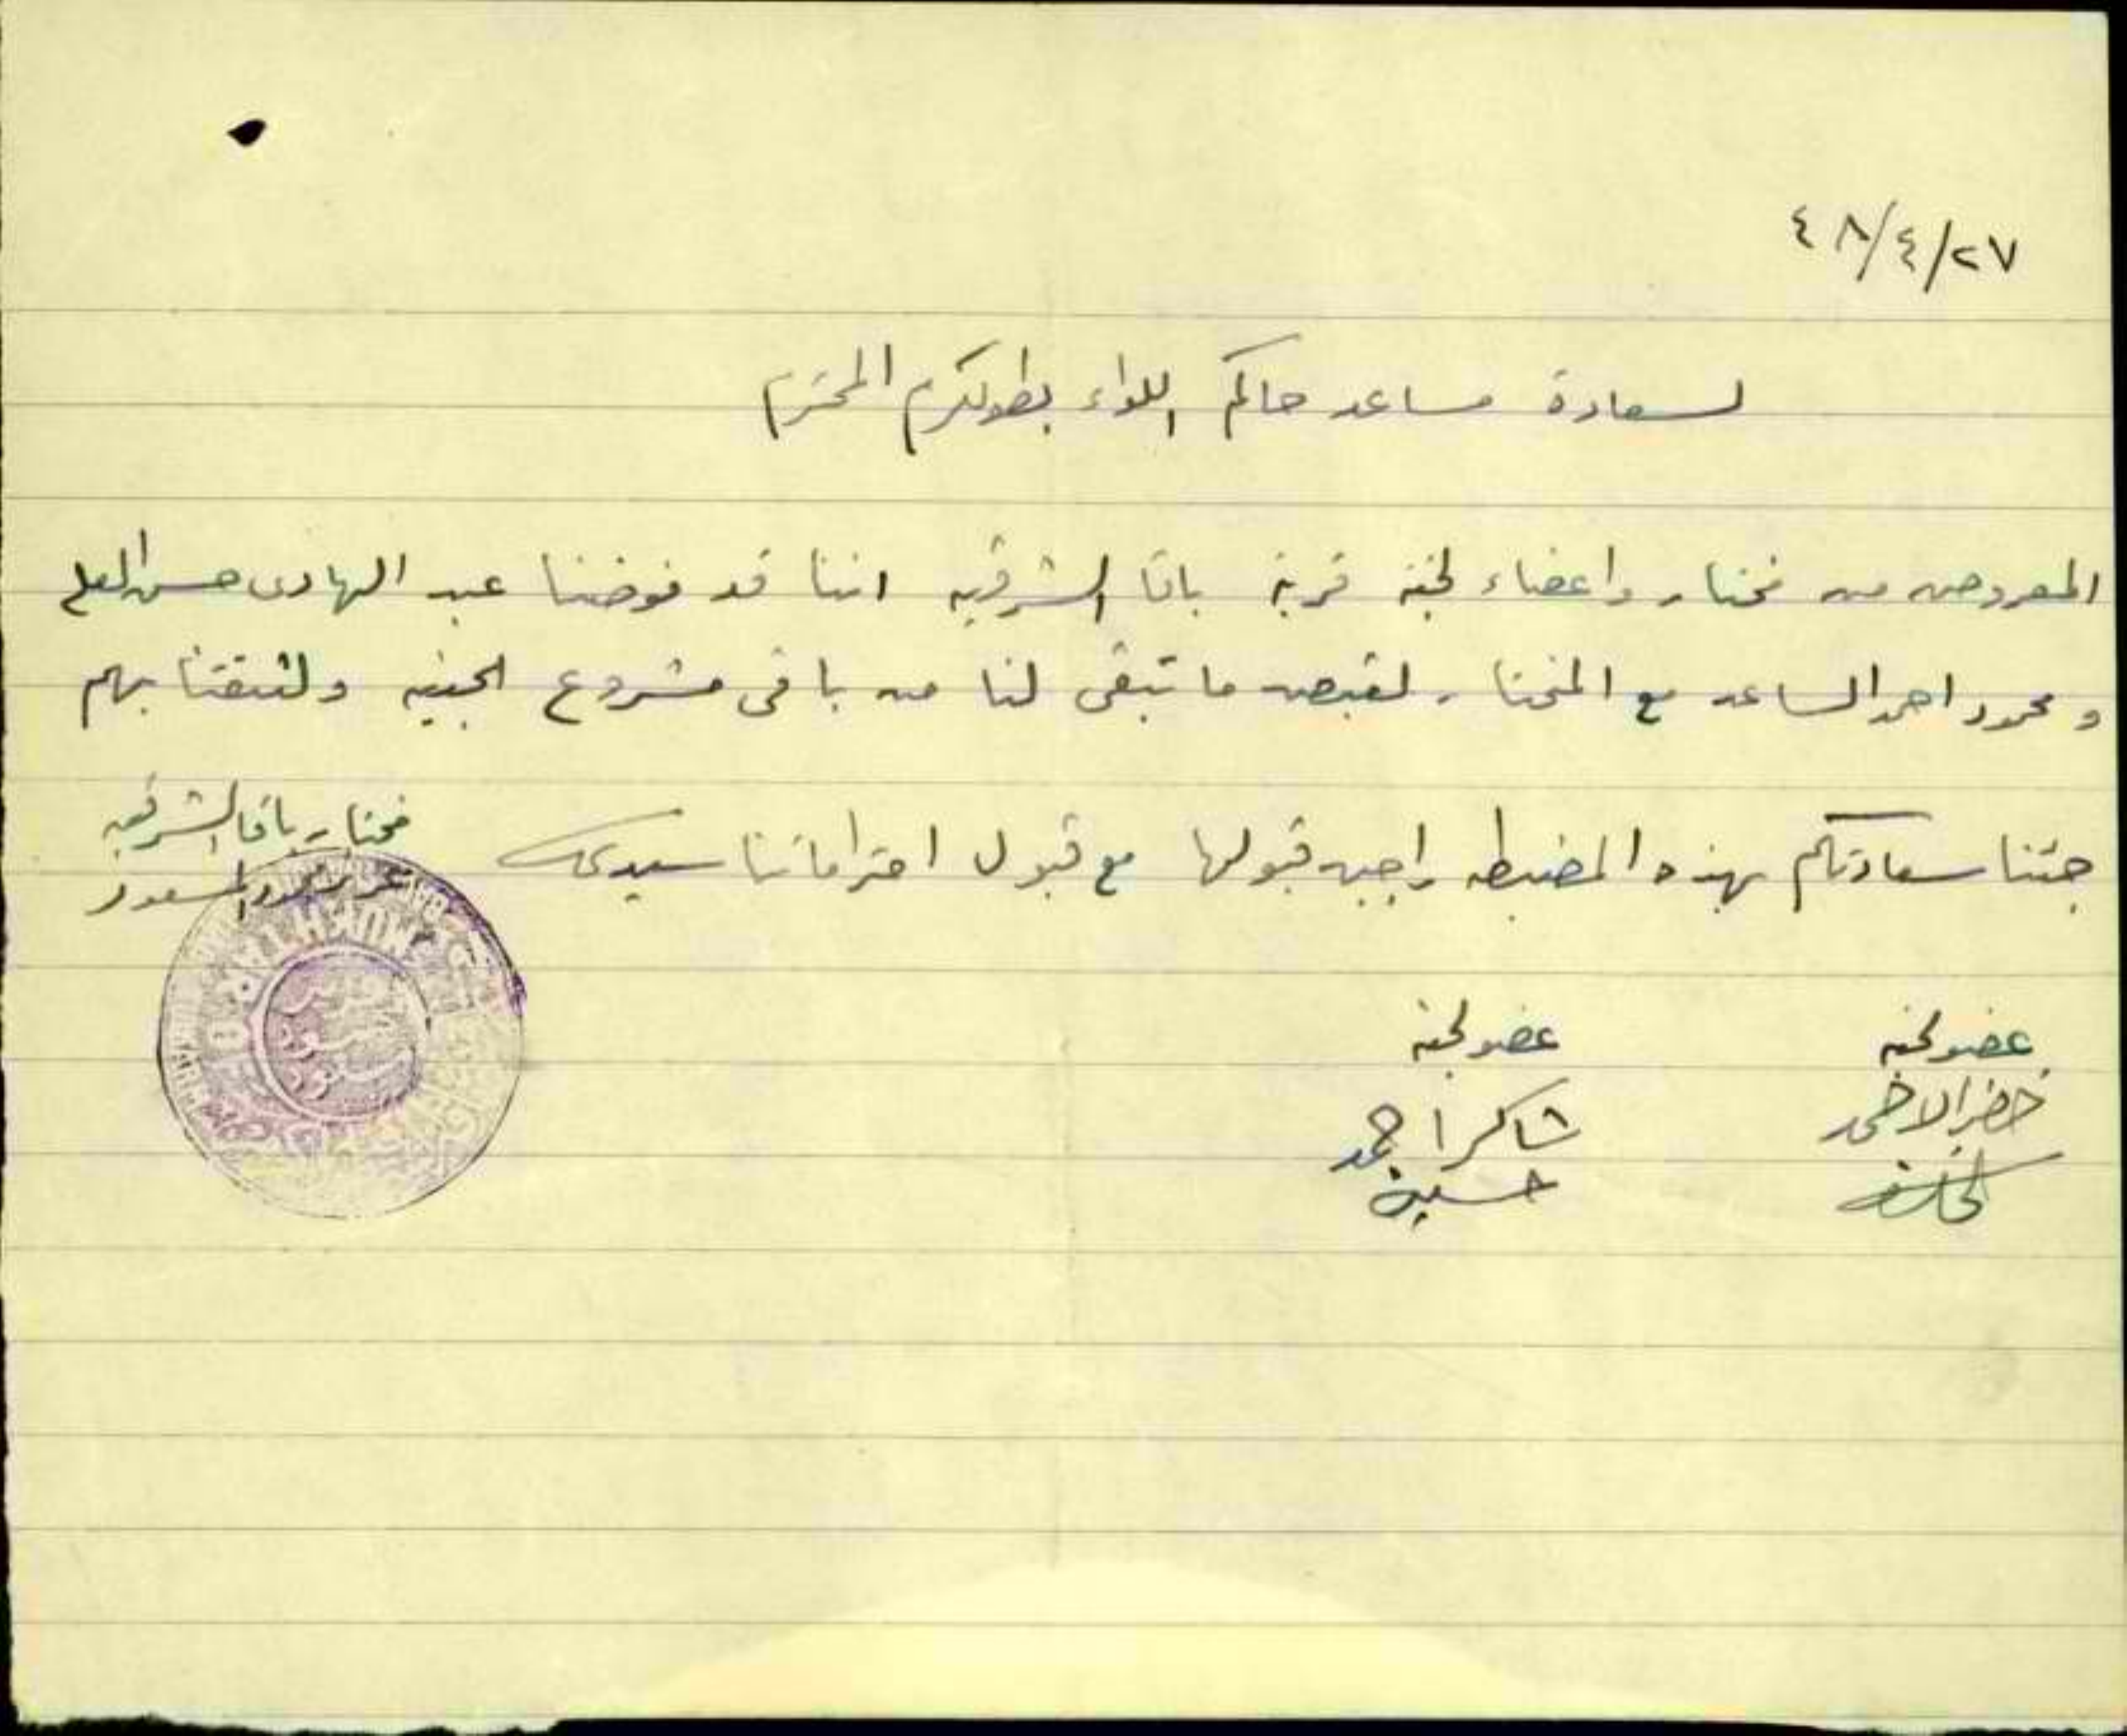 ٤٨/٤/٢٧
لسعادة مساعد حاكم اللواء بطولكرم المحترم
المعروض من مختار واعضاء لجنة قرية باقا الشرقيه اننا قد فوضنا عبد الهادى حسن العلي
ومحمود احمد الساعد مع المختار لقبض ما تبقى لنا من باقى مشروع الجبيه ولثقتنا بهم
جئنا سعادتكم بهذه المضبطه راجين قبولها مع قبول احتراماتنا سيدي
مختار باقا الشرقيه
محمود المسعود
MUKHTAR
عضو لجنه
خضر الاحمد
عضو لجنه
شاكر احمد
حسين